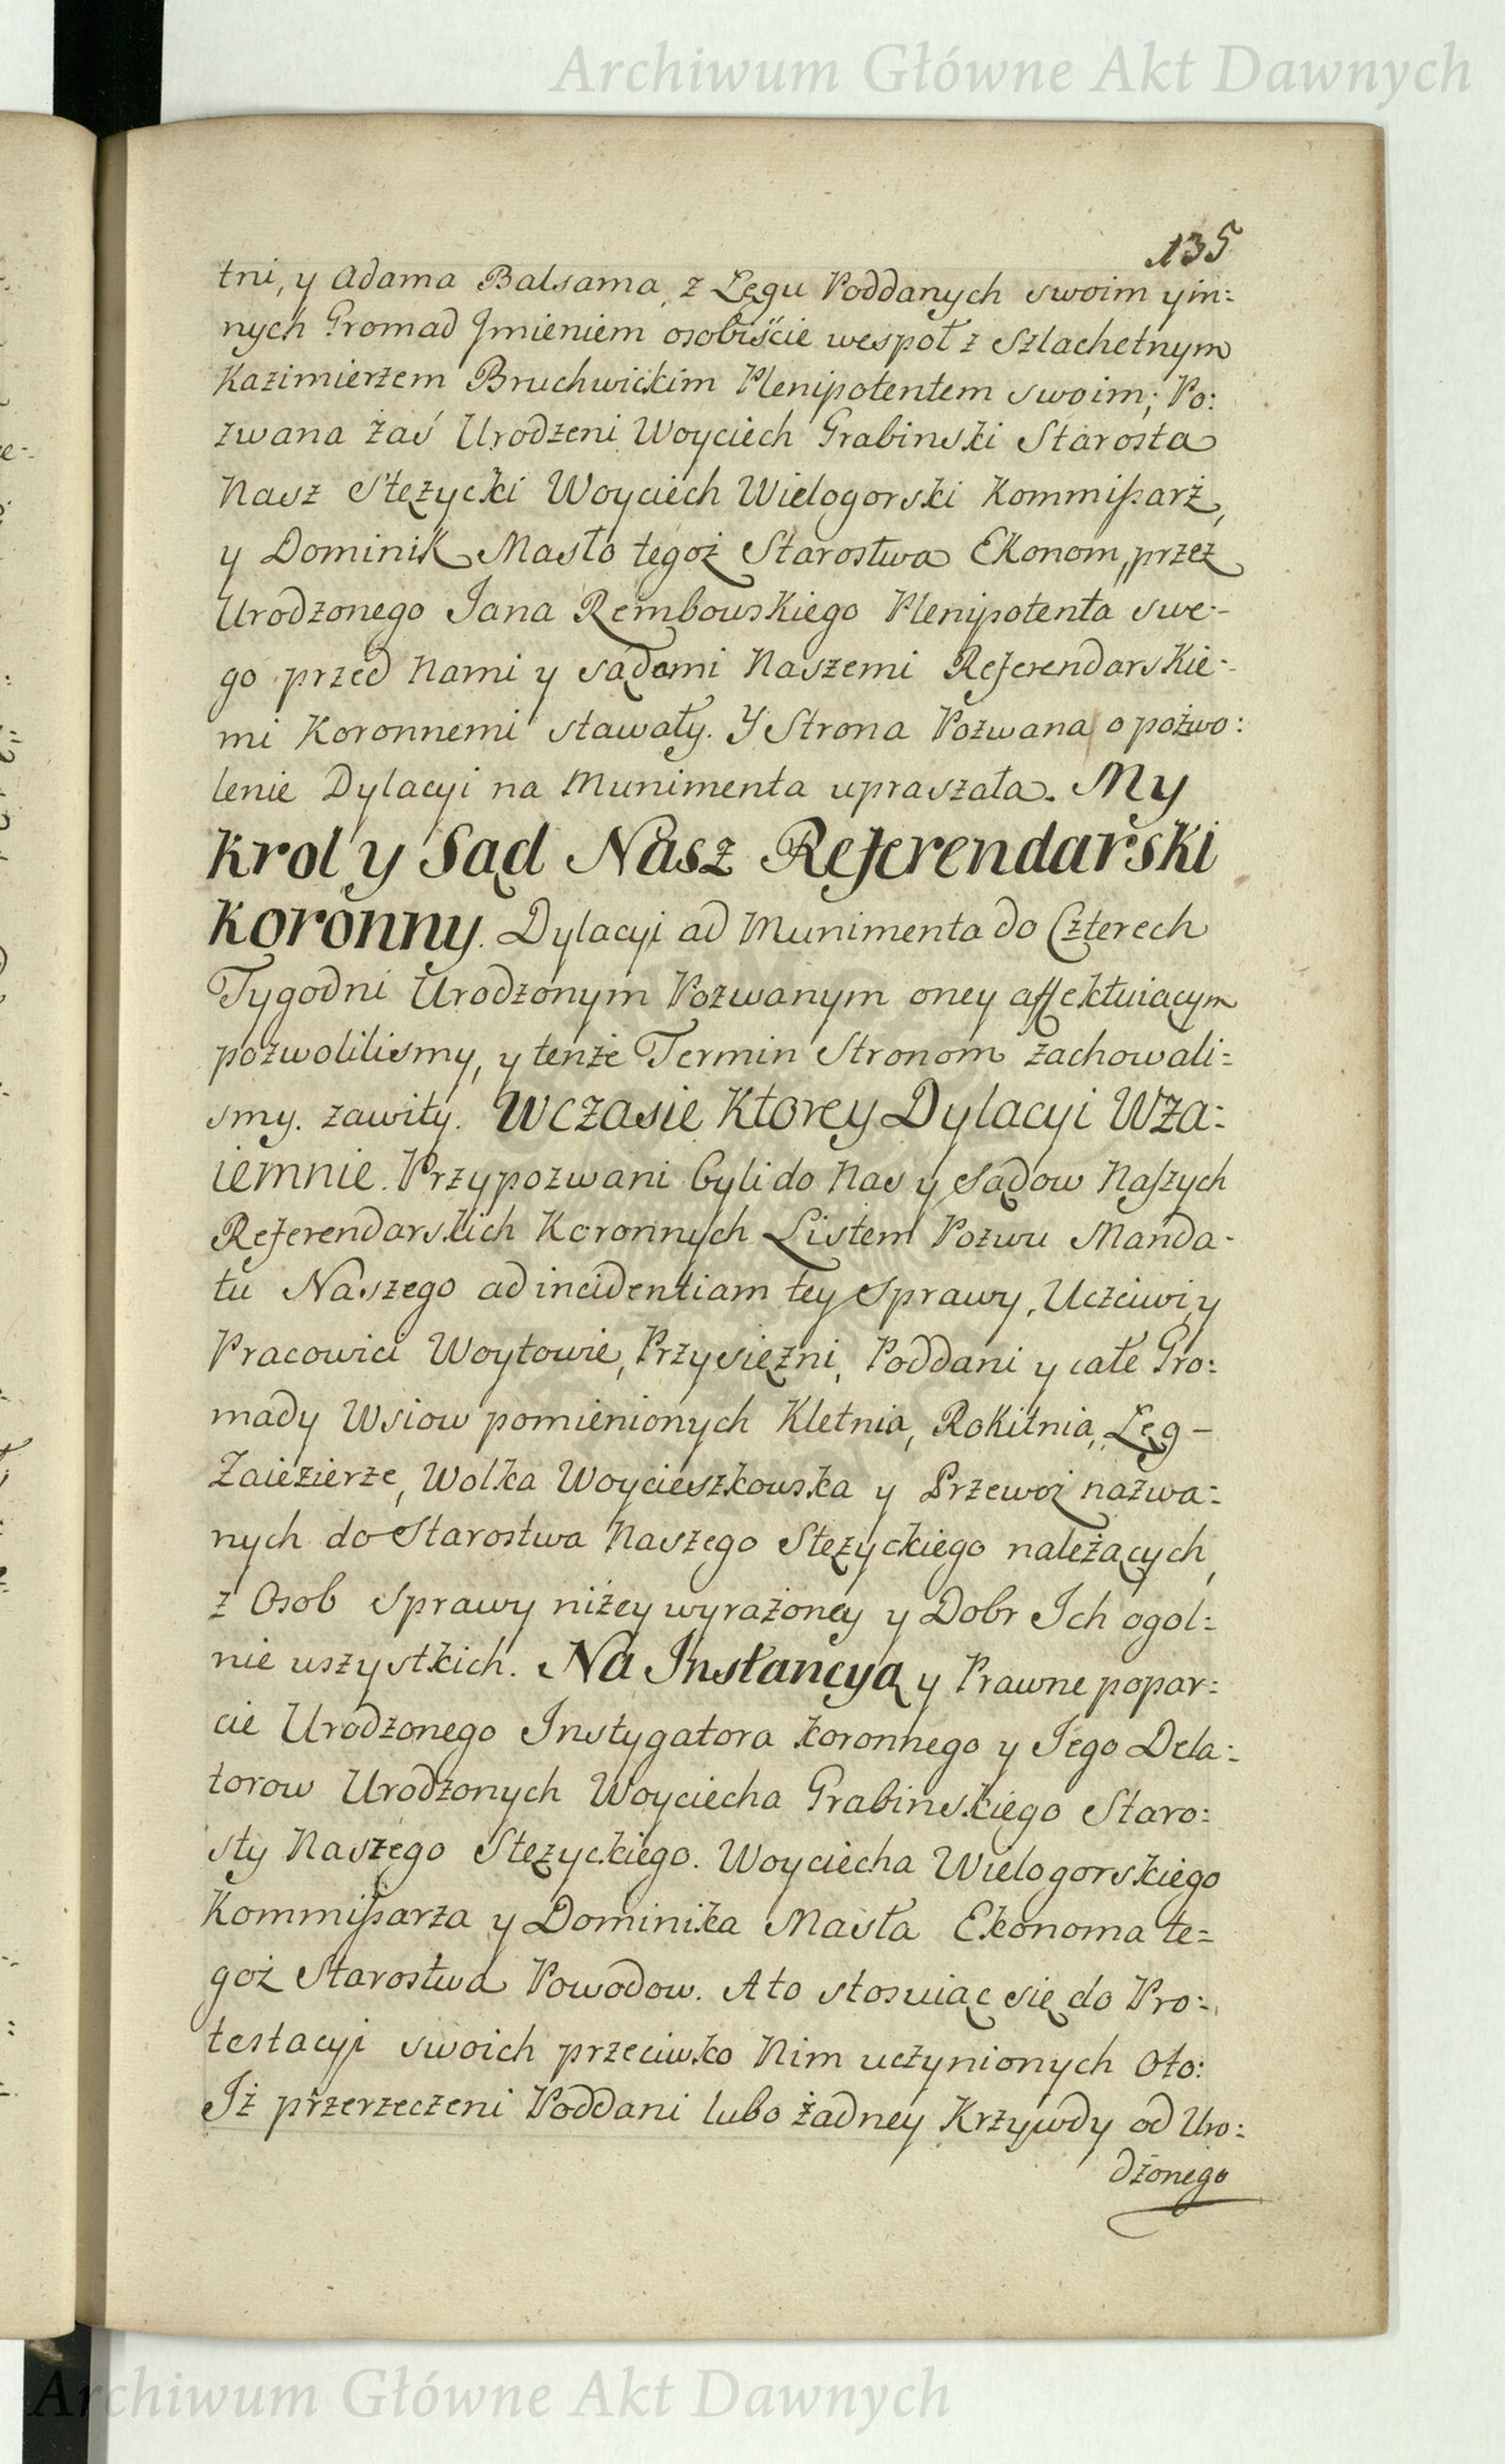 Archiwum Główne Akt Dawnych
135
tni, y Adama Balsama, z Lęgu Poddanych swoim y in:
nych Gromad Jmieniem osobiście wespoł z Szlachetnym
Kazimierzem Bruchwickim Plenipotentem swoim; Po:
zwana zaś Urodzeni Woyciech Grabinski Starosta
Nasz Stęzycki Woyciech Wielogorski Kommißarz,
y Dominik Masło tegoż Starostwa Ekonom, przez
Urodzonego Jana Rembowskiego Plenipotenta swe:
go przed Nami y sądami Naszemi Referendarskie:
mi Koronnemi stawały. Y Strona Pozwana o pozwo:
lenie Dylacyi na Munimenta upraszała. My
Krol y Sąd Nasz Referendarski
Koronny. Dylacyi ad Munimenta do Czterech
Tygodni Urodzonym Pozwanym oney affektuiącym
pozwolilismy, y tenże Termin Stronom zachowali:
smy. zawity. Wczasie Ktorey Dylacyi Wza:
iemnie. Przypozwani byli do Nas y Sądow Naszych
Referendarskich Koronnych Listem Pozwu Manda:
tu Naszego ad incidentiam tey Sprawy, Uczciwi, y
Pracowici Woytowie, Przysięzni, Poddani y całe Gro:
mady Wsiow pomienionych Kletnia, Rokitnia, Lęg –
Zaiezierze, Wolka Woycieszkowska y Przewoz nazwa:
nych do Starostwa Naszego Stęzyckiego należących,
z Osob Sprawy niżey wyrażoney y Dobr Ich ogol:
nie wszystkich. Na Instancyą y Prawne popar:
cie Urodzonego Instygatora koronnego y Jego Dela:
torow Urodzonych Woyciecha Grabinskiego Staro:
sty Naszego Stęzyckiego. Woyciecha Wielogorskiego
Kommißarza y Dominika Masła Ekonoma te=
goż Starostwa Powodow. A to stosuiąc się do Pro:
testacyi swoich przeciwko Nim uczynionych Oto:
Iż przerzeczeni Poddani lubo żadney Krzywdy od Uro:
dzonego
Archiwum Główne Akt Dawnych